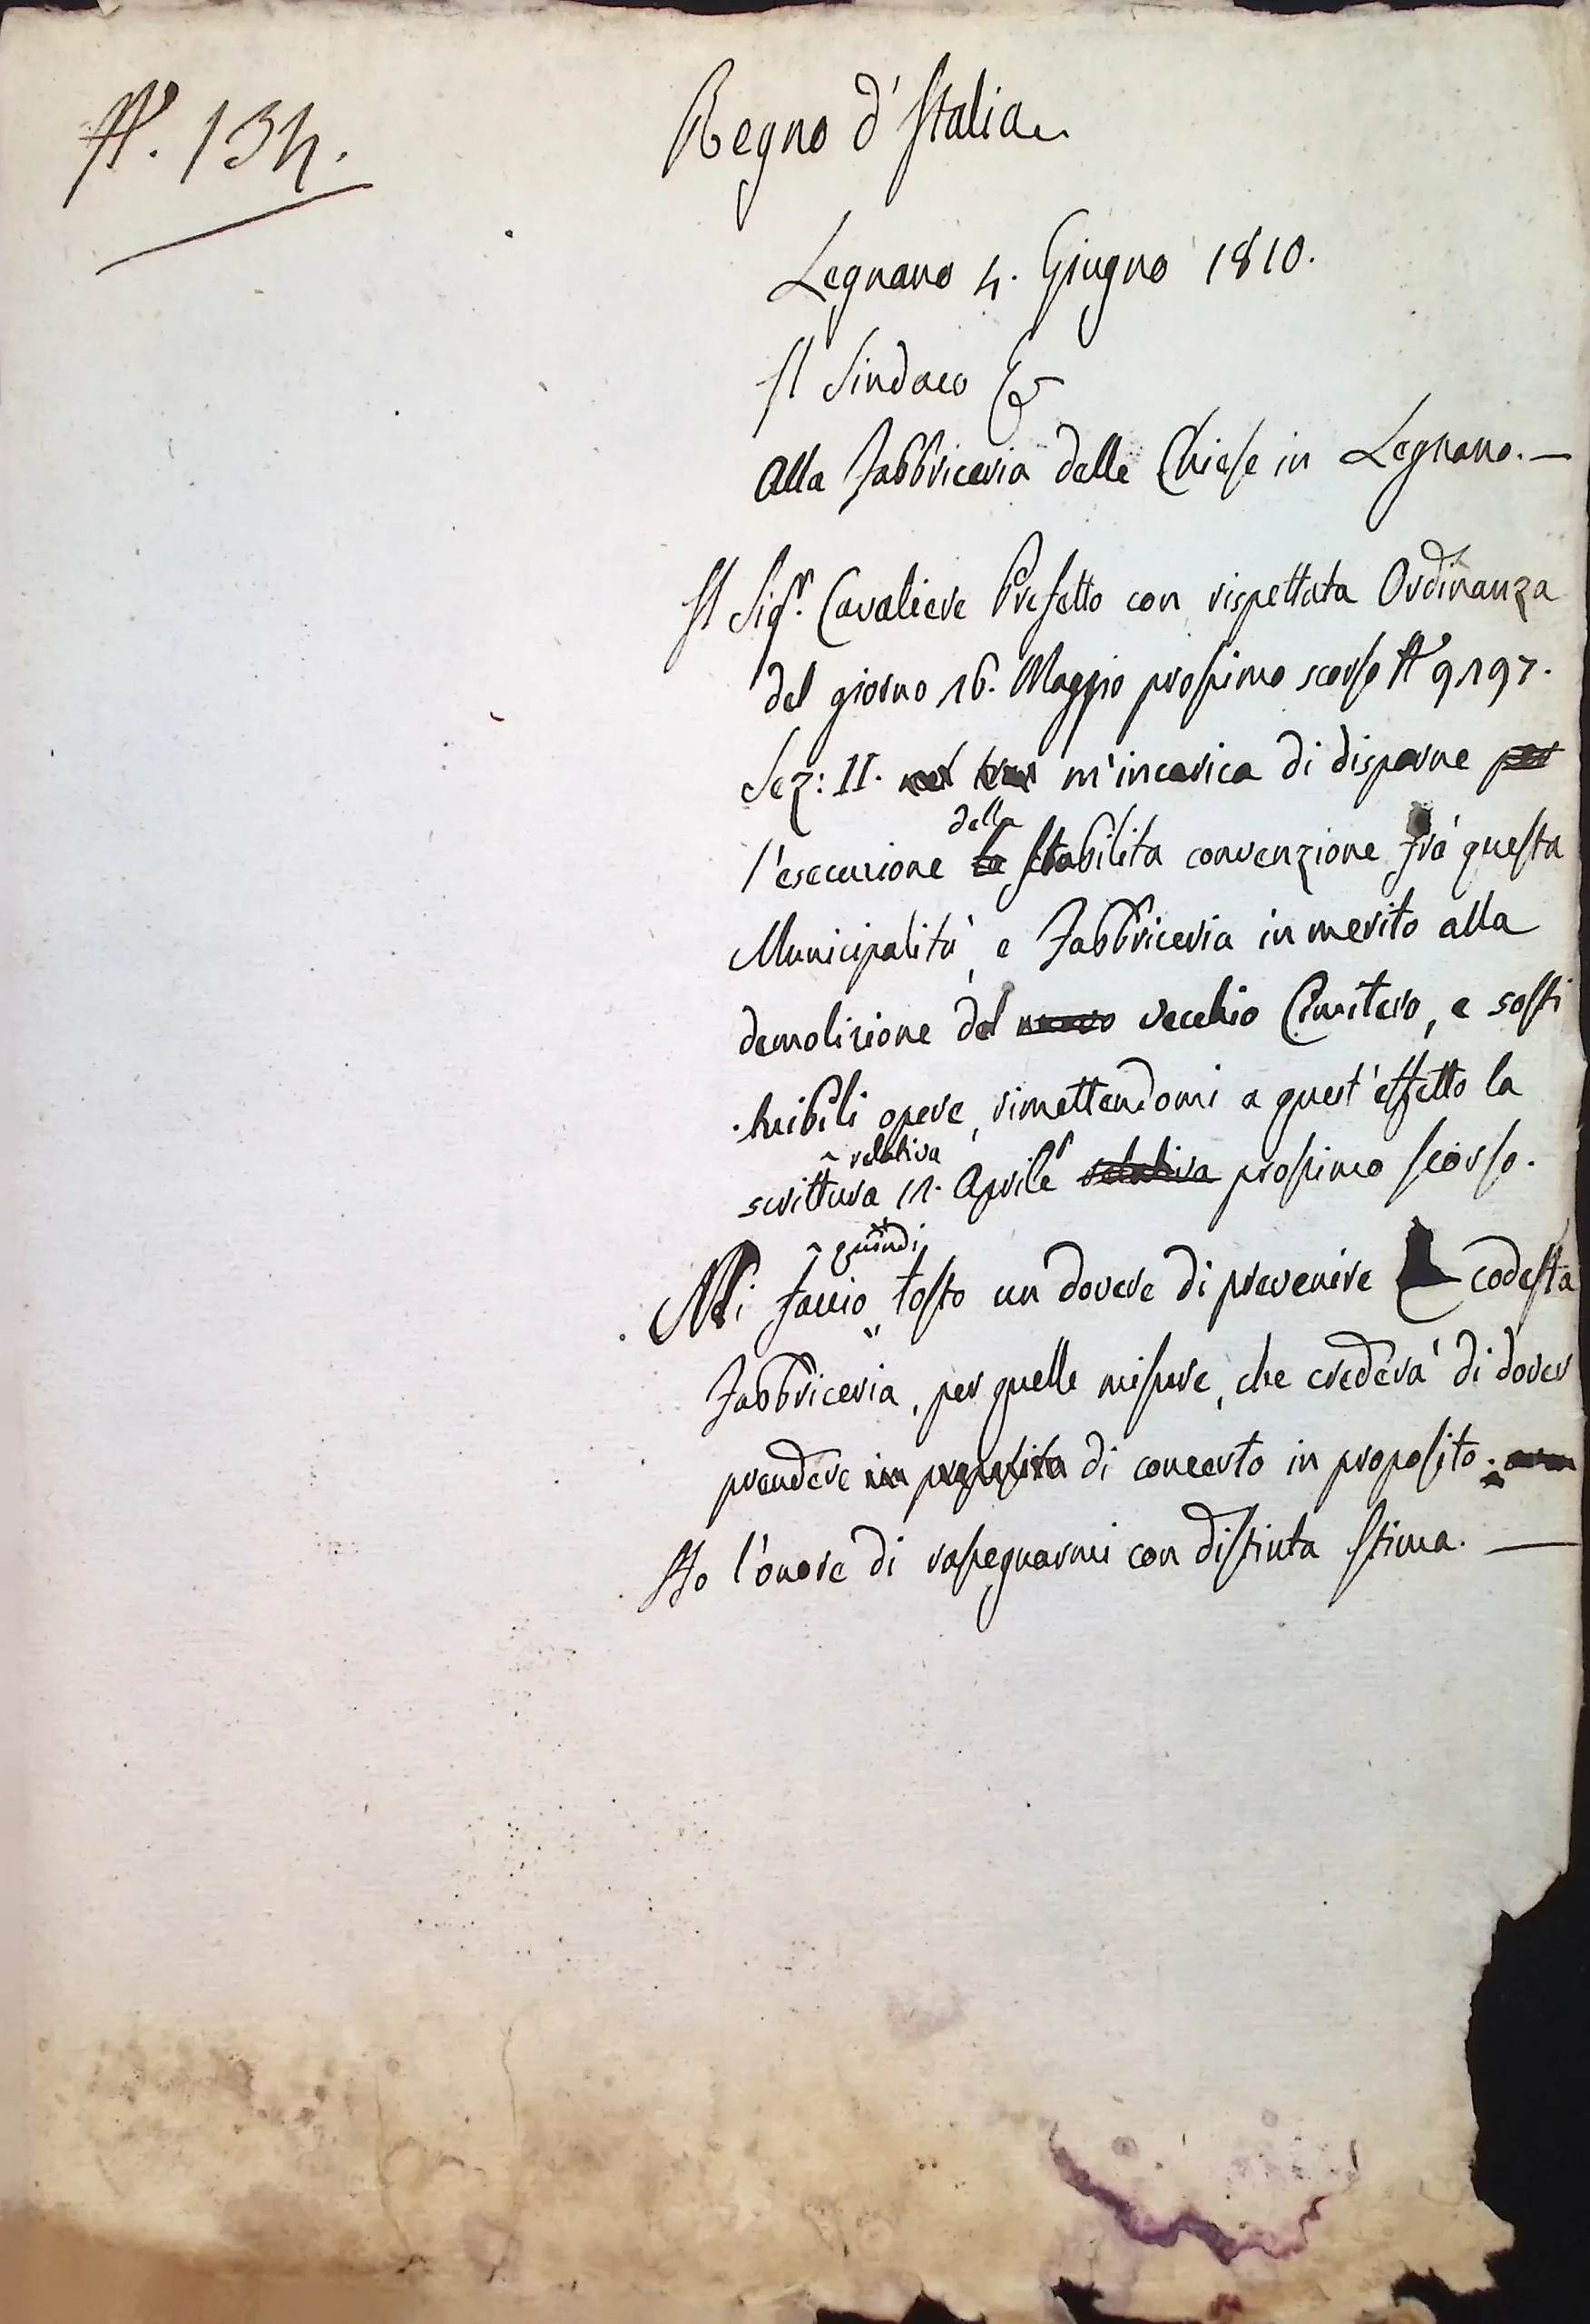 N.° 134.
Regno d'Italia
Legnano 4. Giugno 1810.
Il Sindaco &
Alla Fabbriceria delle Chiese in Legnano. —
Il Sig.r Cavaliere Prefetto con rispettata Ordinanza
del giorno 16. Maggio prossimo scorso N.° 9197.
Sez: II. m'incarica di disporne per
della
l'esecuzione la stabilita convenzione frà questa
Municipalità, e Fabbriceria in merito alla
demolizione del nuovo vecchio Cimitero, e
opere, rimettendomi a quest'effetto la
relativa
scrittura 11. Aprile relativa prossimo scorso.
quindi
Mi faccio tosto un dovere di prevenire codesta
Fabbriceria, per quelle misure, che crederà di dover
prendere in proposito di concerto in proposito.
Ho l'onore di rassegnarmi con distinta stima. —